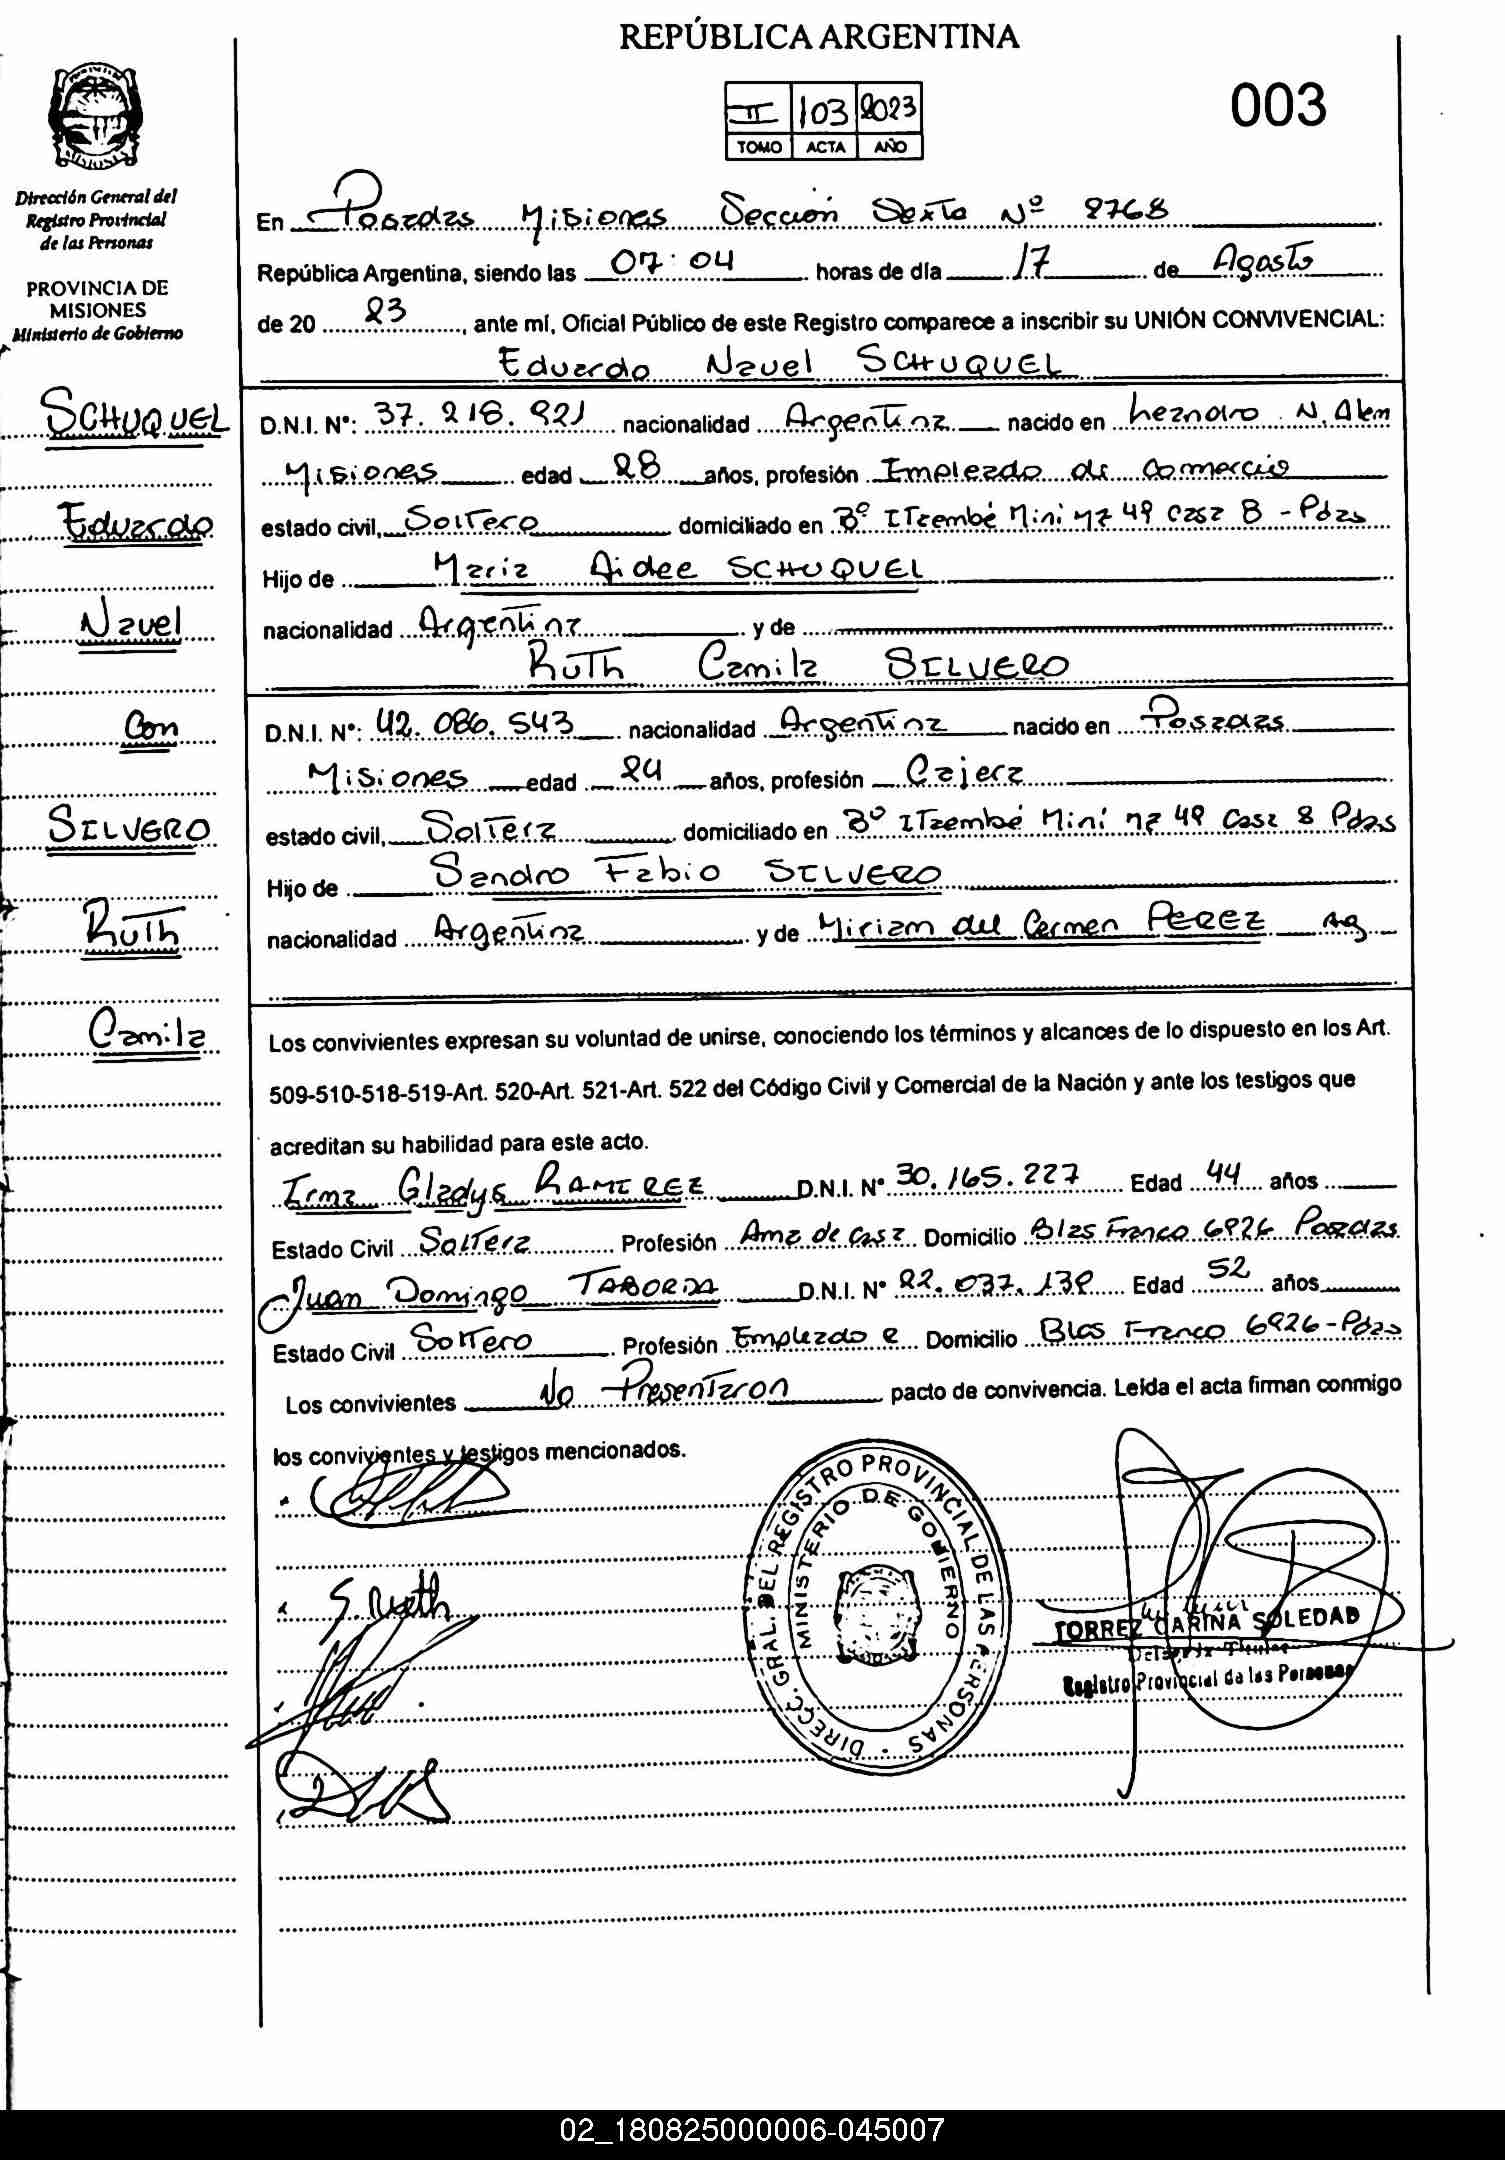 REPÚBLICA ARGENTINA
II 103 2023
TOMO ACTA AÑO
003
Dirección General del
Registro Provincial
de las Personas
PROVINCIA DE
MISIONES
Ministerio de Gobierno
SCHUQUEL
Eduardo
Nauel
Con
SILVERO
Ruth
Camila
En Posadas Misiones Sección Sexta Nº 2768
República Argentina, siendo las 07:04 horas de día 17 de Agosto
de 20 23, ante mí, Oficial Público de este Registro comparece a inscribir su UNIÓN CONVIVENCIAL:
Eduardo Nauel SCHUQUEL
D.N.I. Nº: 37.218.921 nacionalidad Argentina nacido en Leandro N. Alem
Misiones edad 28 años, profesión Empleado de Comercio
estado civil, Soltero domiciliado en Bº ITaembé Mini Mz 49 Casa 8 - Pdas
Hijo de Maria Aidee SCHUQUEL
nacionalidad Argentina y de
Ruth Camila SILVERO
D.N.I. Nº: 42.086.543 nacionalidad Argentina nacido en Posadas
Misiones edad 24 años, profesión Cajera
estado civil, Soltera domiciliado en Bº ITaembé Mini Mz 49 Casa 8 Pdas
Hijo de Sandro Fabio SILVERO
nacionalidad Argentina y de Miriam del Carmen PEREZ Ag
Los convivientes expresan su voluntad de unirse, conociendo los términos y alcances de lo dispuesto en los Art.
509-510-518-519-Art. 520-Art. 521-Art. 522 del Código Civil y Comercial de la Nación y ante los testigos que
acreditan su habilidad para este acto.
Irma Gladys RAMIREZ D.N.I. Nº 30.165.227 Edad 44 años
Estado Civil Soltera Profesión Ama de casa Domicilio Blas Franco 6926 Posadas
Juan Domingo TABORDA D.N.I. Nº 22.037.139 Edad 52 años
Estado Civil Soltero Profesión Empleado Domicilio Blas Franco 6926 - Pdas
Los convivientes No Presentaron pacto de convivencia. Leída el acta firman conmigo
los convivientes y testigos mencionados.
S. Ruth
DIRECC. GRAL. DEL REGISTRO PROVINCIAL DE LAS PERSONAS
MINISTERIO DE GOBIERNO
TORREZ CARINA SOLEDAD
Registro Provincial de las Personas
02_180825000006-045007